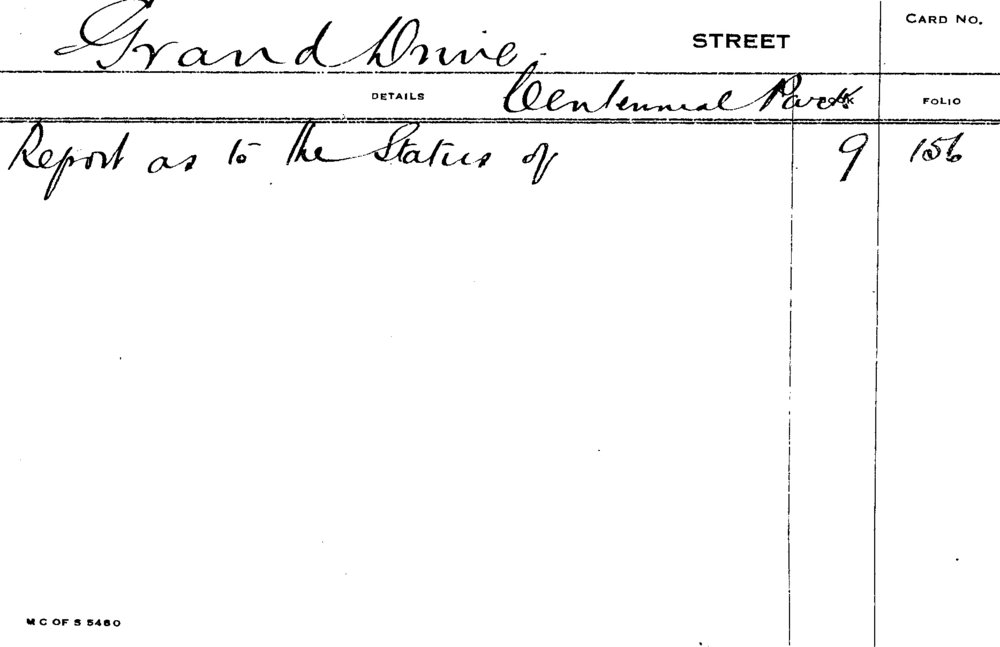 Grand Drive. STREET CARD NO.
DETAILS Centennial Park FOLIO
Report as to the Status of 9 156
M C OF S 5480